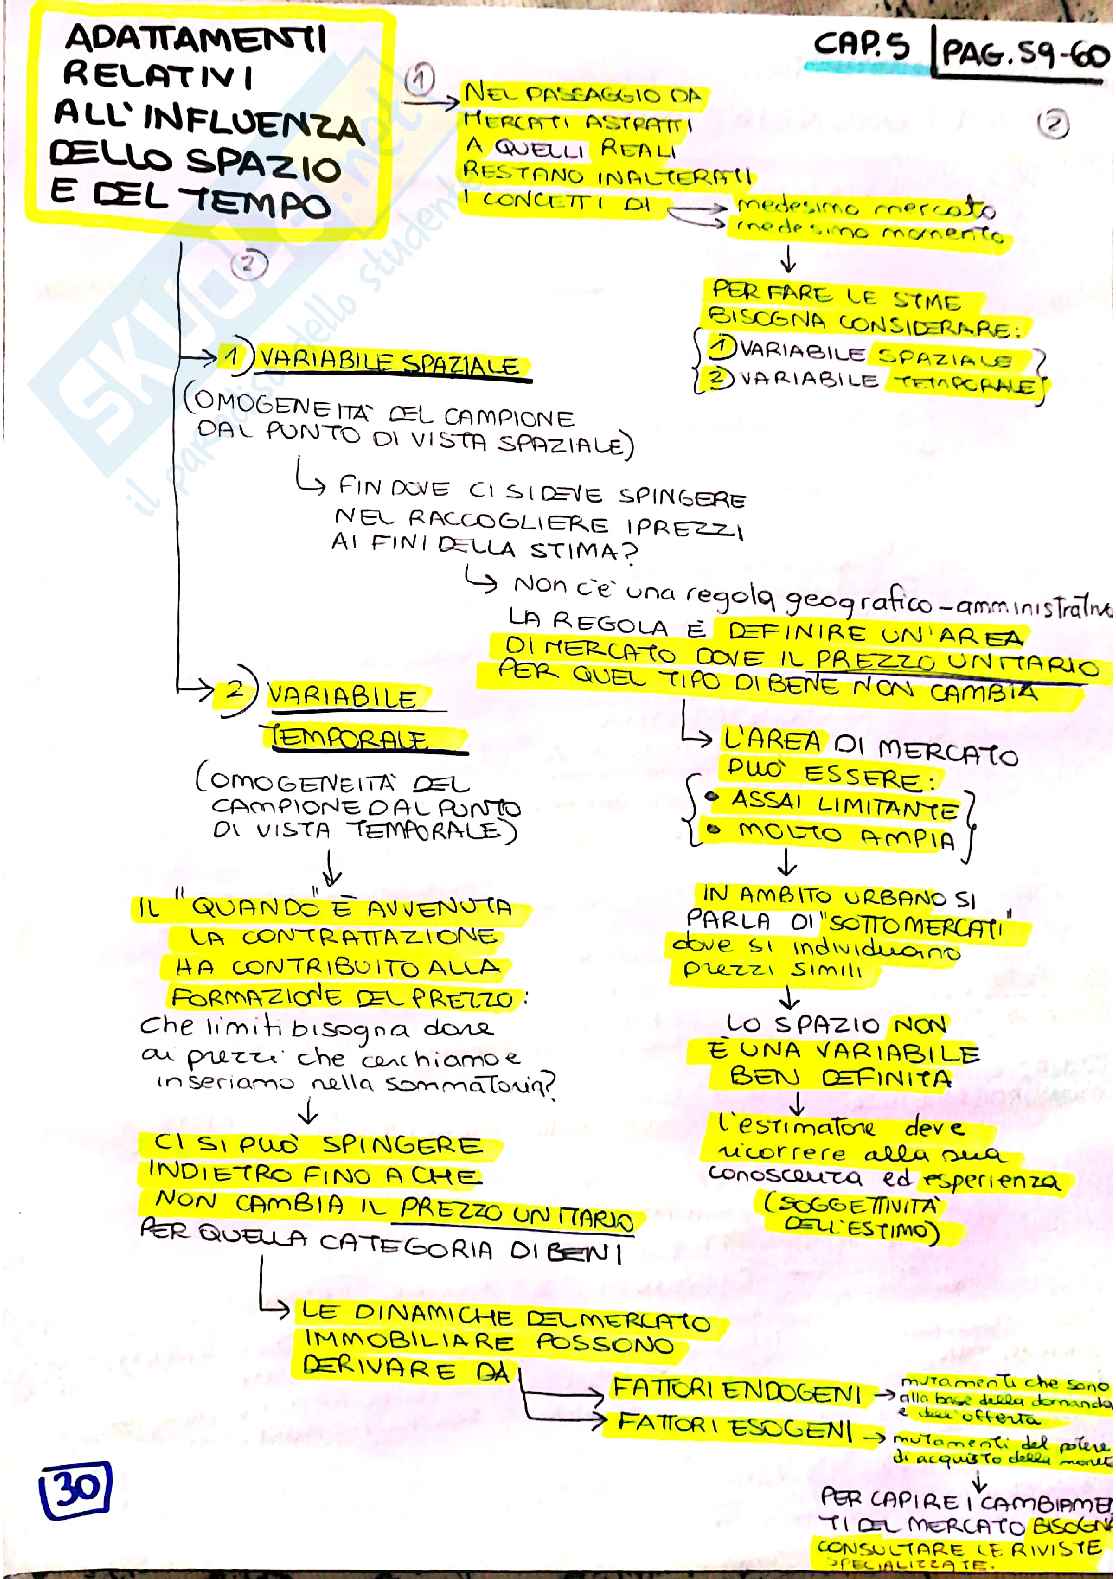 ADATTAMENTI
RELATIVI
ALL'INFLUENZA
DELLO SPAZIO
E DEL TEMPO
CAP.5 | PAG. 59-60
1
NEL PASSAGGIO DA
MERCATI ASTRATTI
A QUELLI REALI
RESTANO INALTERATI
I CONCETTI DI
medesimo mercato
medesimo momento
2
PER FARE LE STIME
BISOGNA CONSIDERARE:
1) VARIABILE SPAZIALE
2) VARIABILE TEMPORALE
2
1) VARIABILE SPAZIALE
(OMOGENEITÀ DEL CAMPIONE
DAL PUNTO DI VISTA SPAZIALE)
FIN DOVE CI SI DEVE SPINGERE
NEL RACCOGLIERE I PREZZI
AI FINI DELLA STIMA?
Non c'è una regola geografico-amministrativa
LA REGOLA È DEFINIRE UN'AREA
DI MERCATO DOVE IL PREZZO UNITARIO
PER QUEL TIPO DI BENE NON CAMBIA
L'AREA DI MERCATO
PUÒ ESSERE:
• ASSAI LIMITANTE
• MOLTO AMPIA
IN AMBITO URBANO SI
PARLA DI "SOTTOMERCATI"
dove si individuano
prezzi simili
LO SPAZIO NON
È UNA VARIABILE
BEN DEFINITA
l'estimatore deve
ricorrere alla sua
conoscenza ed esperienza
(SOGGETTIVITÀ
DELL'ESTIMO)
2) VARIABILE
TEMPORALE
(OMOGENEITÀ DEL
CAMPIONE DAL PUNTO
DI VISTA TEMPORALE)
IL "QUANDO" È AVVENUTA
LA CONTRATTAZIONE
HA CONTRIBUITO ALLA
FORMAZIONE DEL PREZZO:
che limiti bisogna dare
ai prezzi che cerchiamo e
inseriamo nella sommatoria?
CI SI PUÒ SPINGERE
INDIETRO FINO A CHE
NON CAMBIA IL PREZZO UNITARIO
PER QUELLA CATEGORIA DI BENI
LE DINAMICHE DEL MERCATO
IMMOBILIARE POSSONO
DERIVARE DA
FATTORI ENDOGENI
mutamenti che sono
alla base della domanda
e dell'offerta
FATTORI ESOGENI
mutamenti del potere
di acquisto della monet
PER CAPIRE I CAMBIAMEN
TI DEL MERCATO BISOGNA
CONSULTARE LE RIVISTE
SPECIALIZZATE.
30
SKUOLA.net
il paradiso dello studente